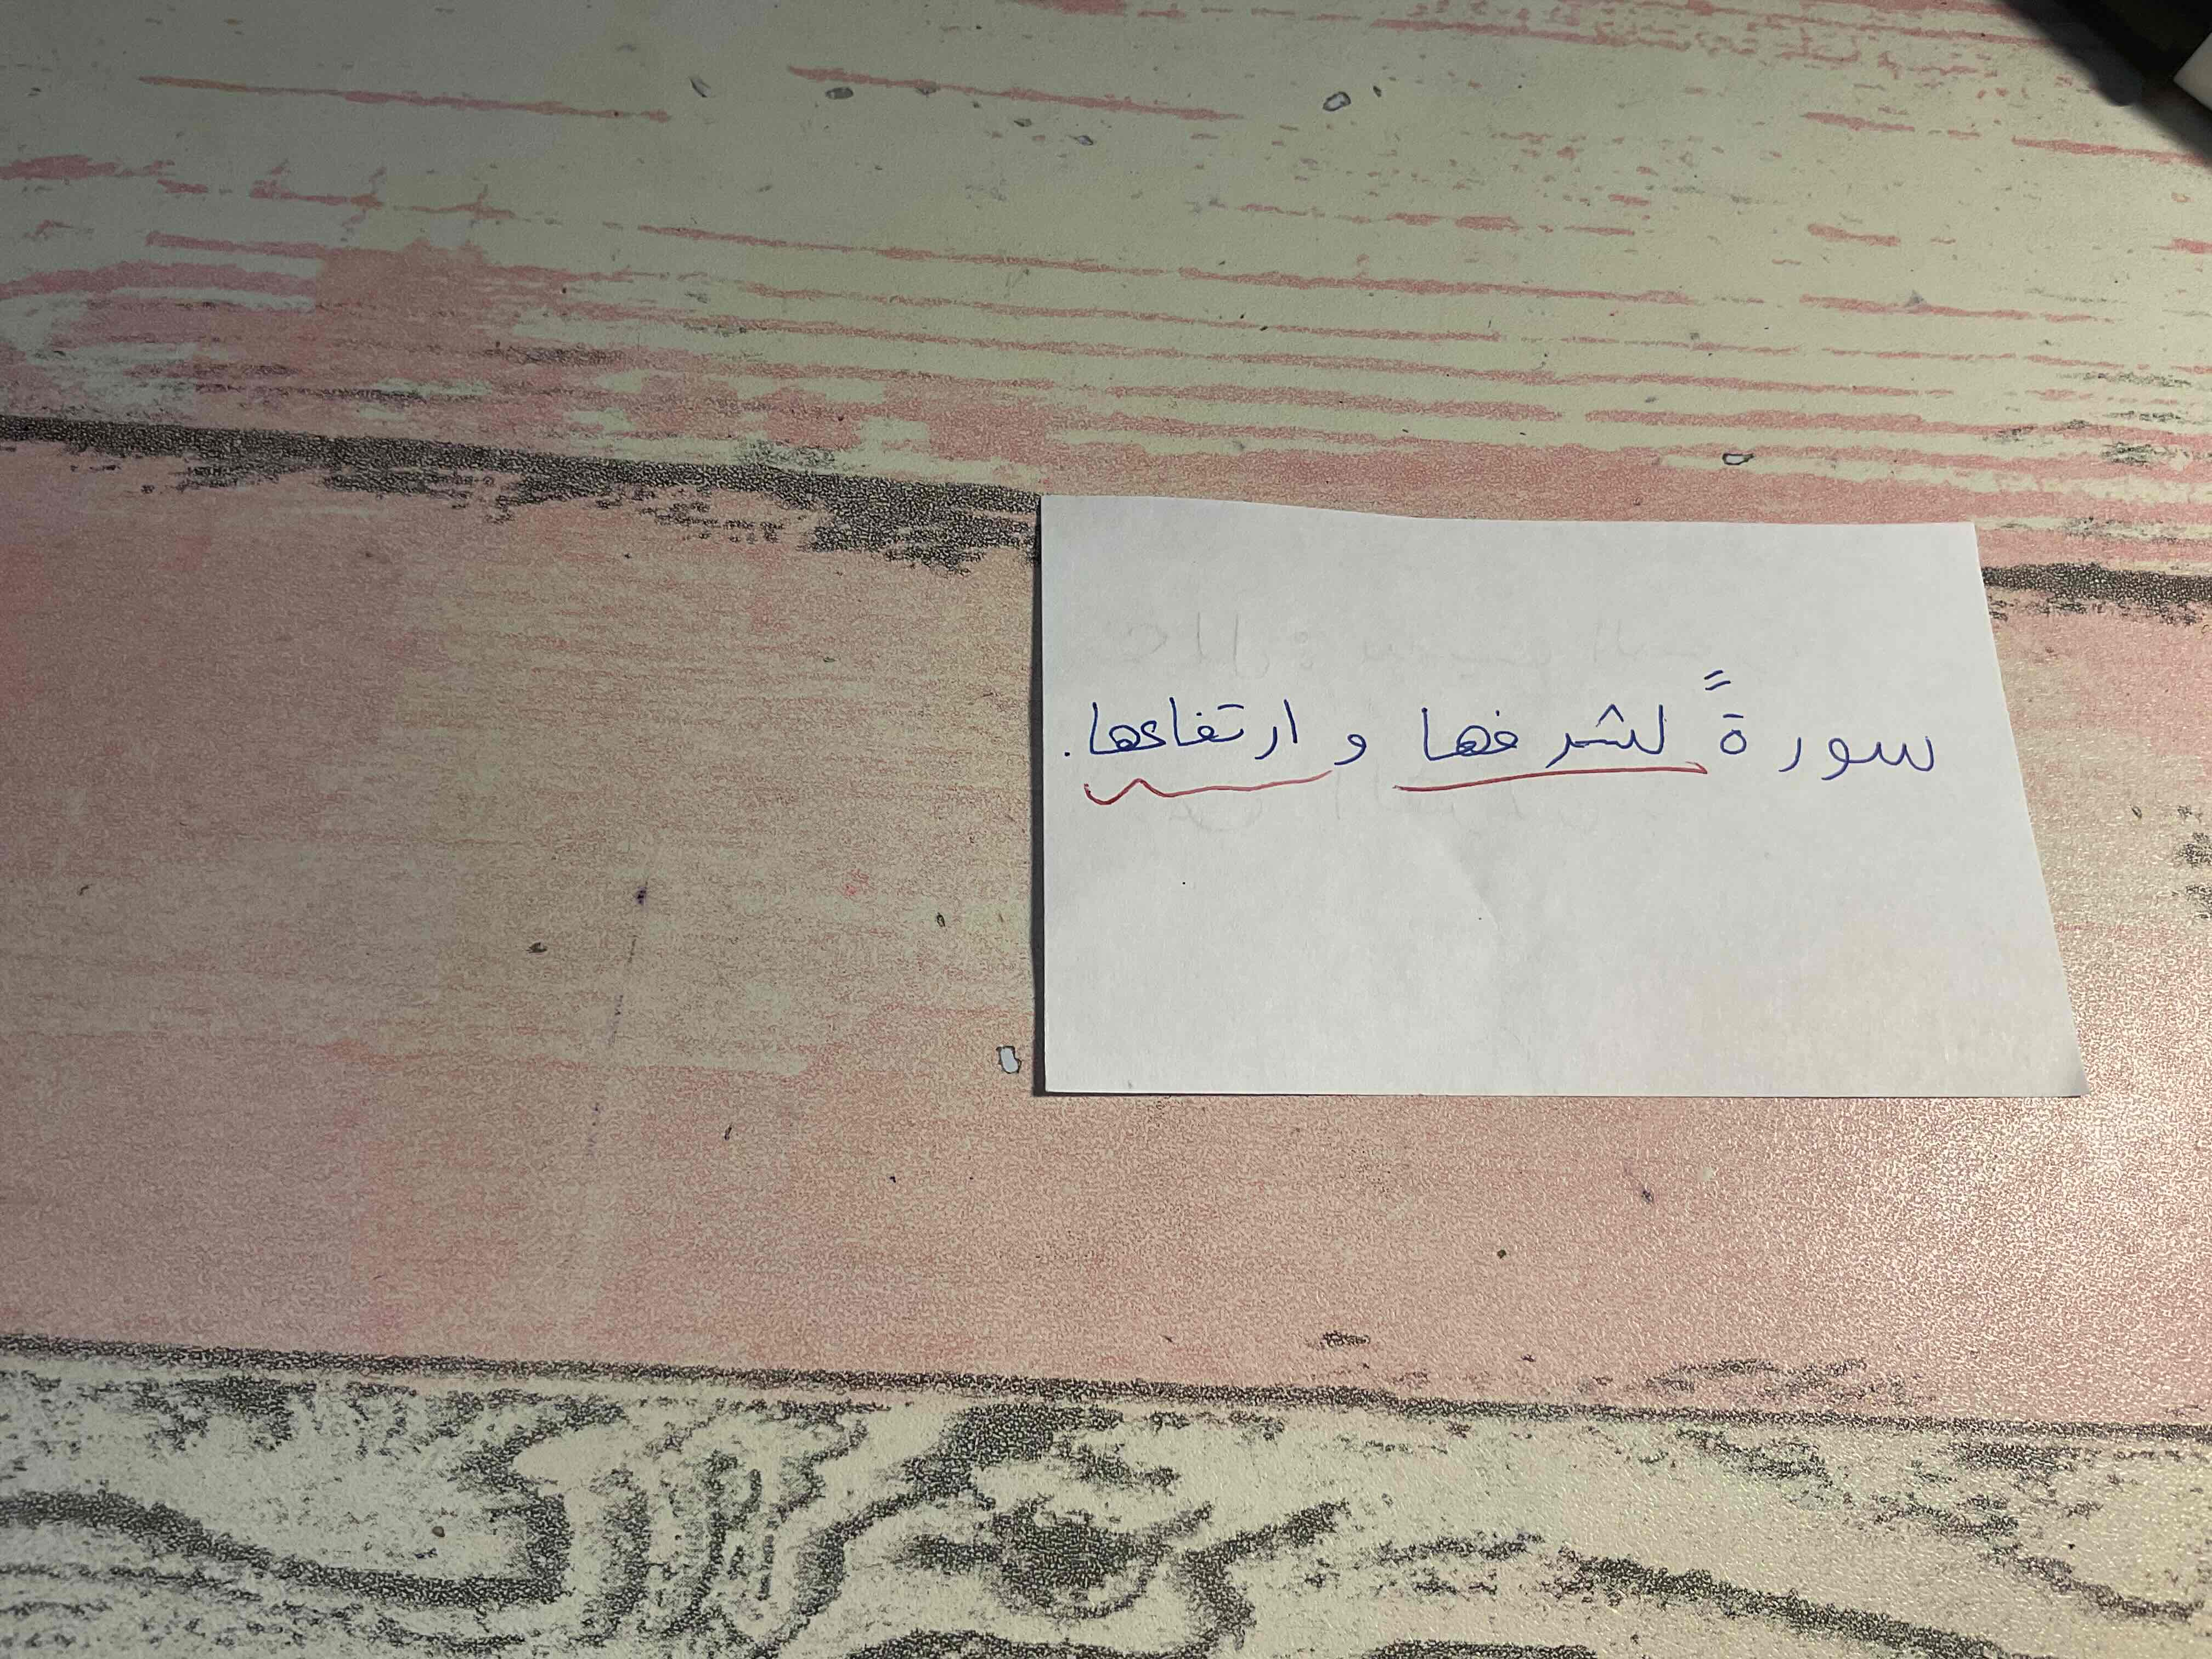 سورةً لشرفها و ارتفاعها.